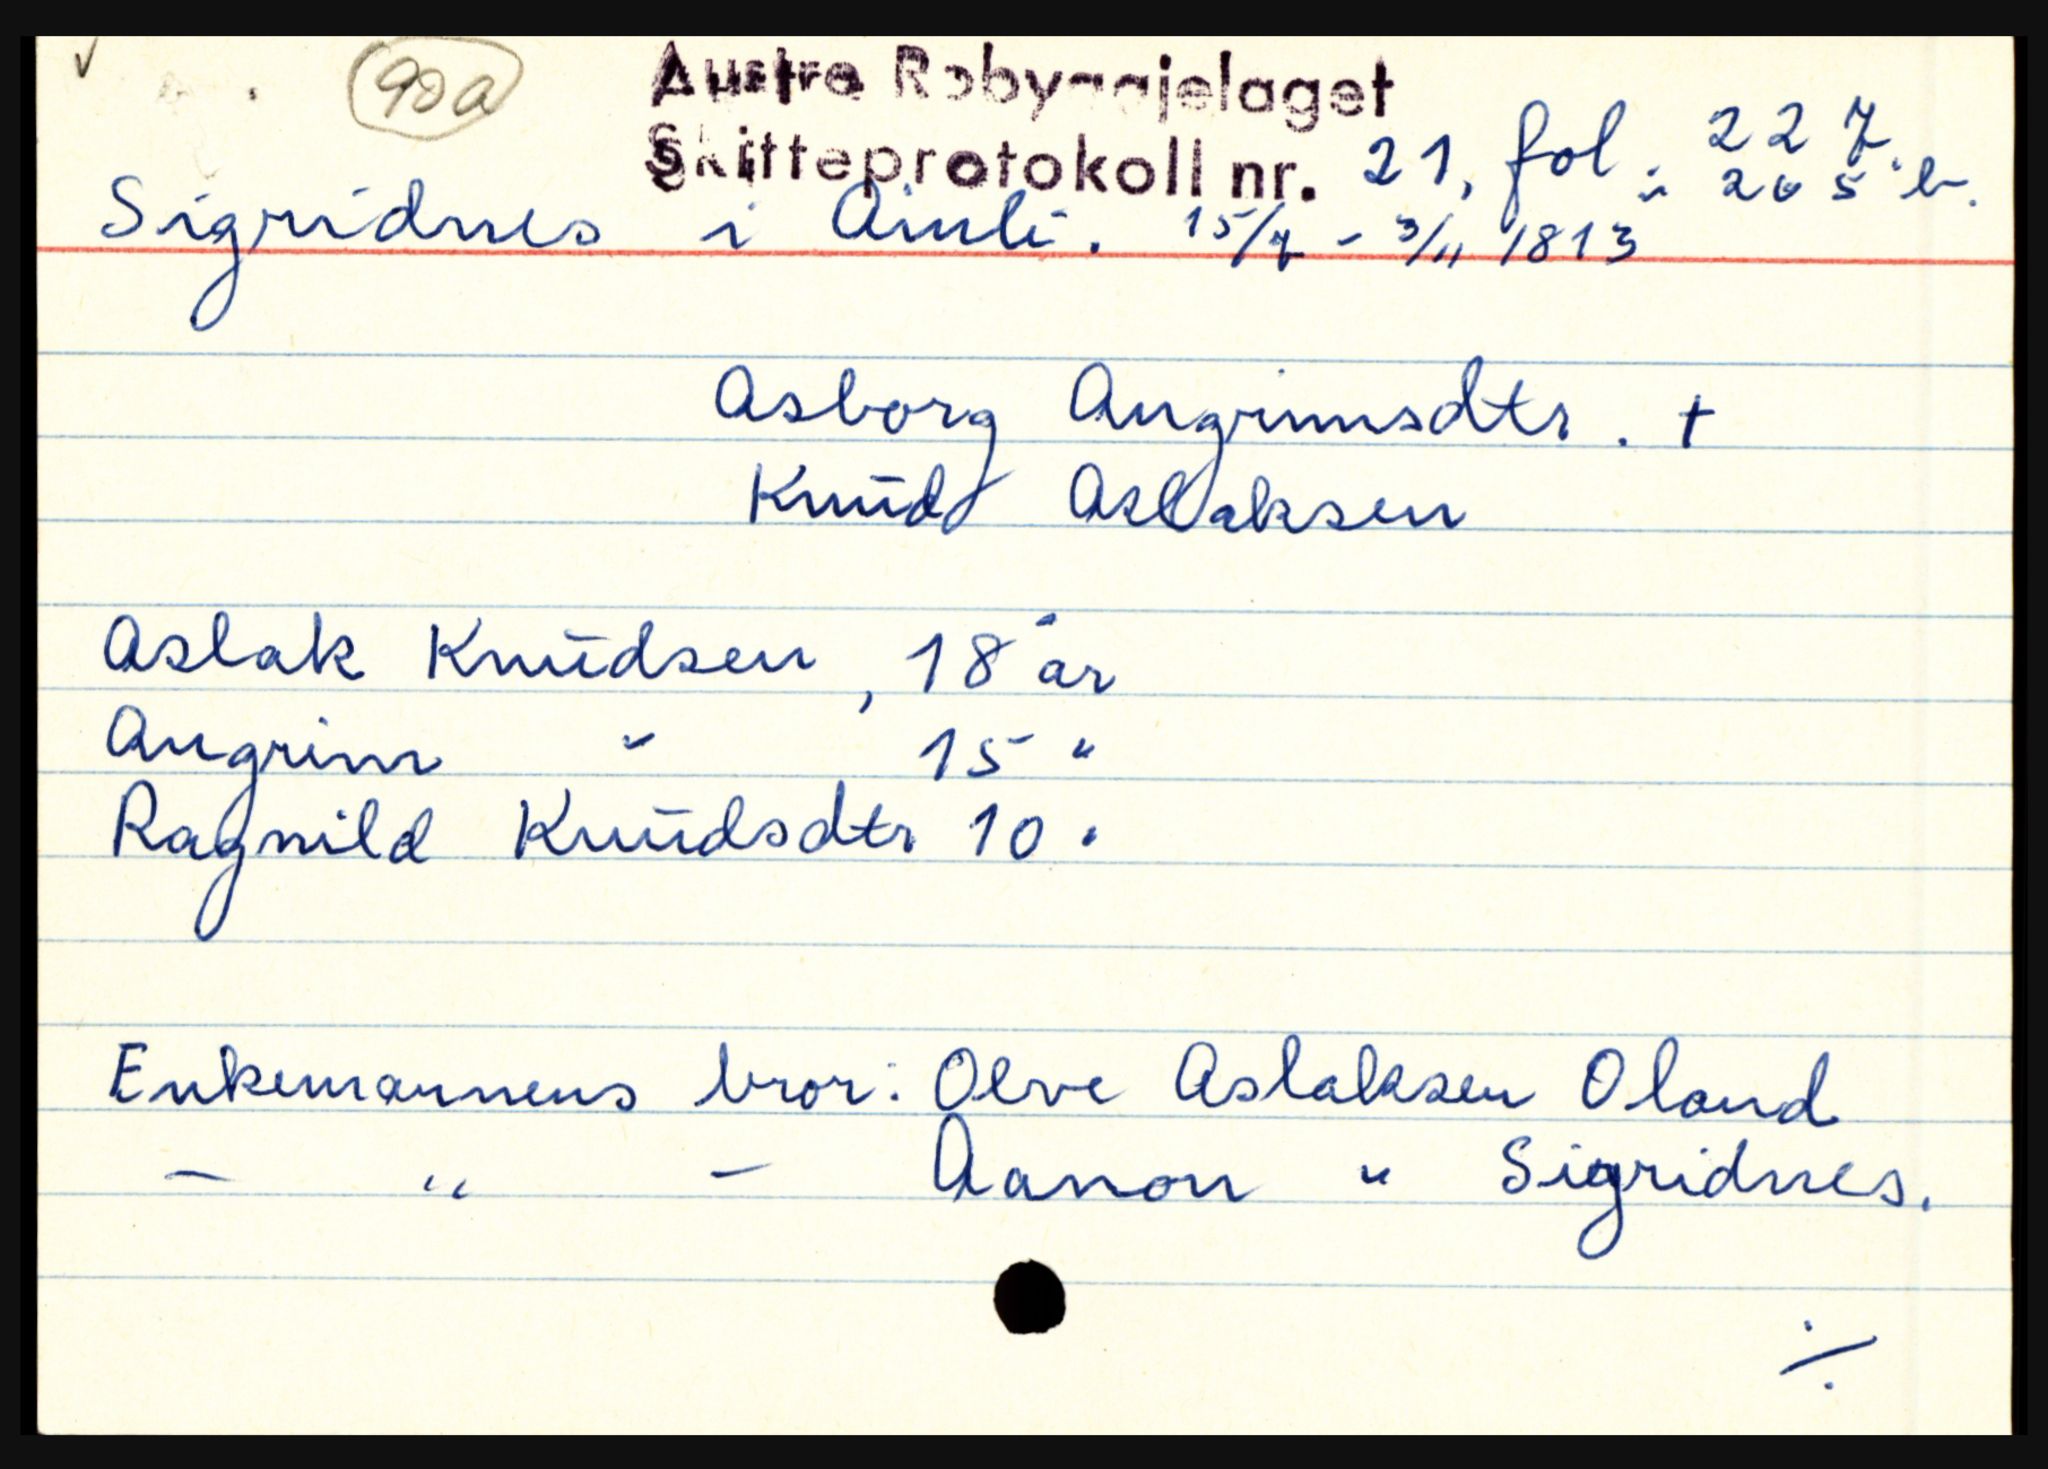 90a
Austre Robyggjelaget
Skifteprotokoll nr. 21, fol. 227.
" 205 b.
Sigridnes i Åmli. 15/7 - 3/11 1813
Asborg Angrimsdtr. +
Knud Aslaksen
Aslak Knudsen, 18 år
Angrim " 15 "
Ragnild Knudsdtr 10 "
Enkemannens bror: Olve Aslaksen Oland
- " - Aanon " Sigridnes.